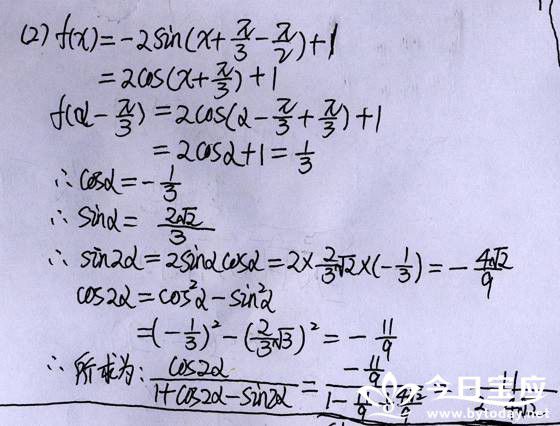 (2) f(x)=-2sin(x+π/3-π/2)+1
=2cos(x+π/3)+1
f(α-π/3)=2cos(α-π/3+π/3)+1
=2cosα+1=1/3
∴cosα=-1/3
∴sinα=2√2/3
∴sin2α=2sinαcosα=2×2/3√2×(-1/3)=-4√2/9
cos2α=cos²α-sin²α
=(-1/3)²-(2/3√3)²=-11/9
∴所求为:cos2α/(1+cos2α-sin2α)=(-11/9)/(1-11/9
今日宝应
www.bytoday.net